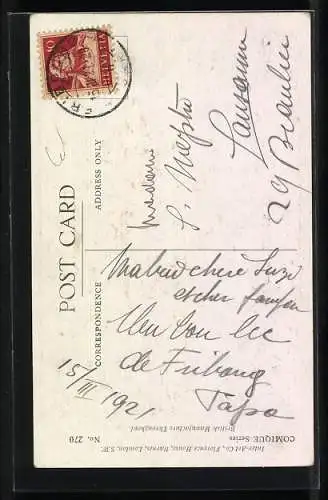 10
HELVETIA
POST CARD
CORRESPONDENCE
ADDRESS ONLY
Madame
S.
Lausanne
29 Beaulieu
Ma bien chère Suze
et cher
Un bon bec
de Fribourg
Papa
15/III 1921
COMIQUE Series No. 270
Inter-Art Co., Florence House, Barnes, London, S.W.
British Manufacture Throughout